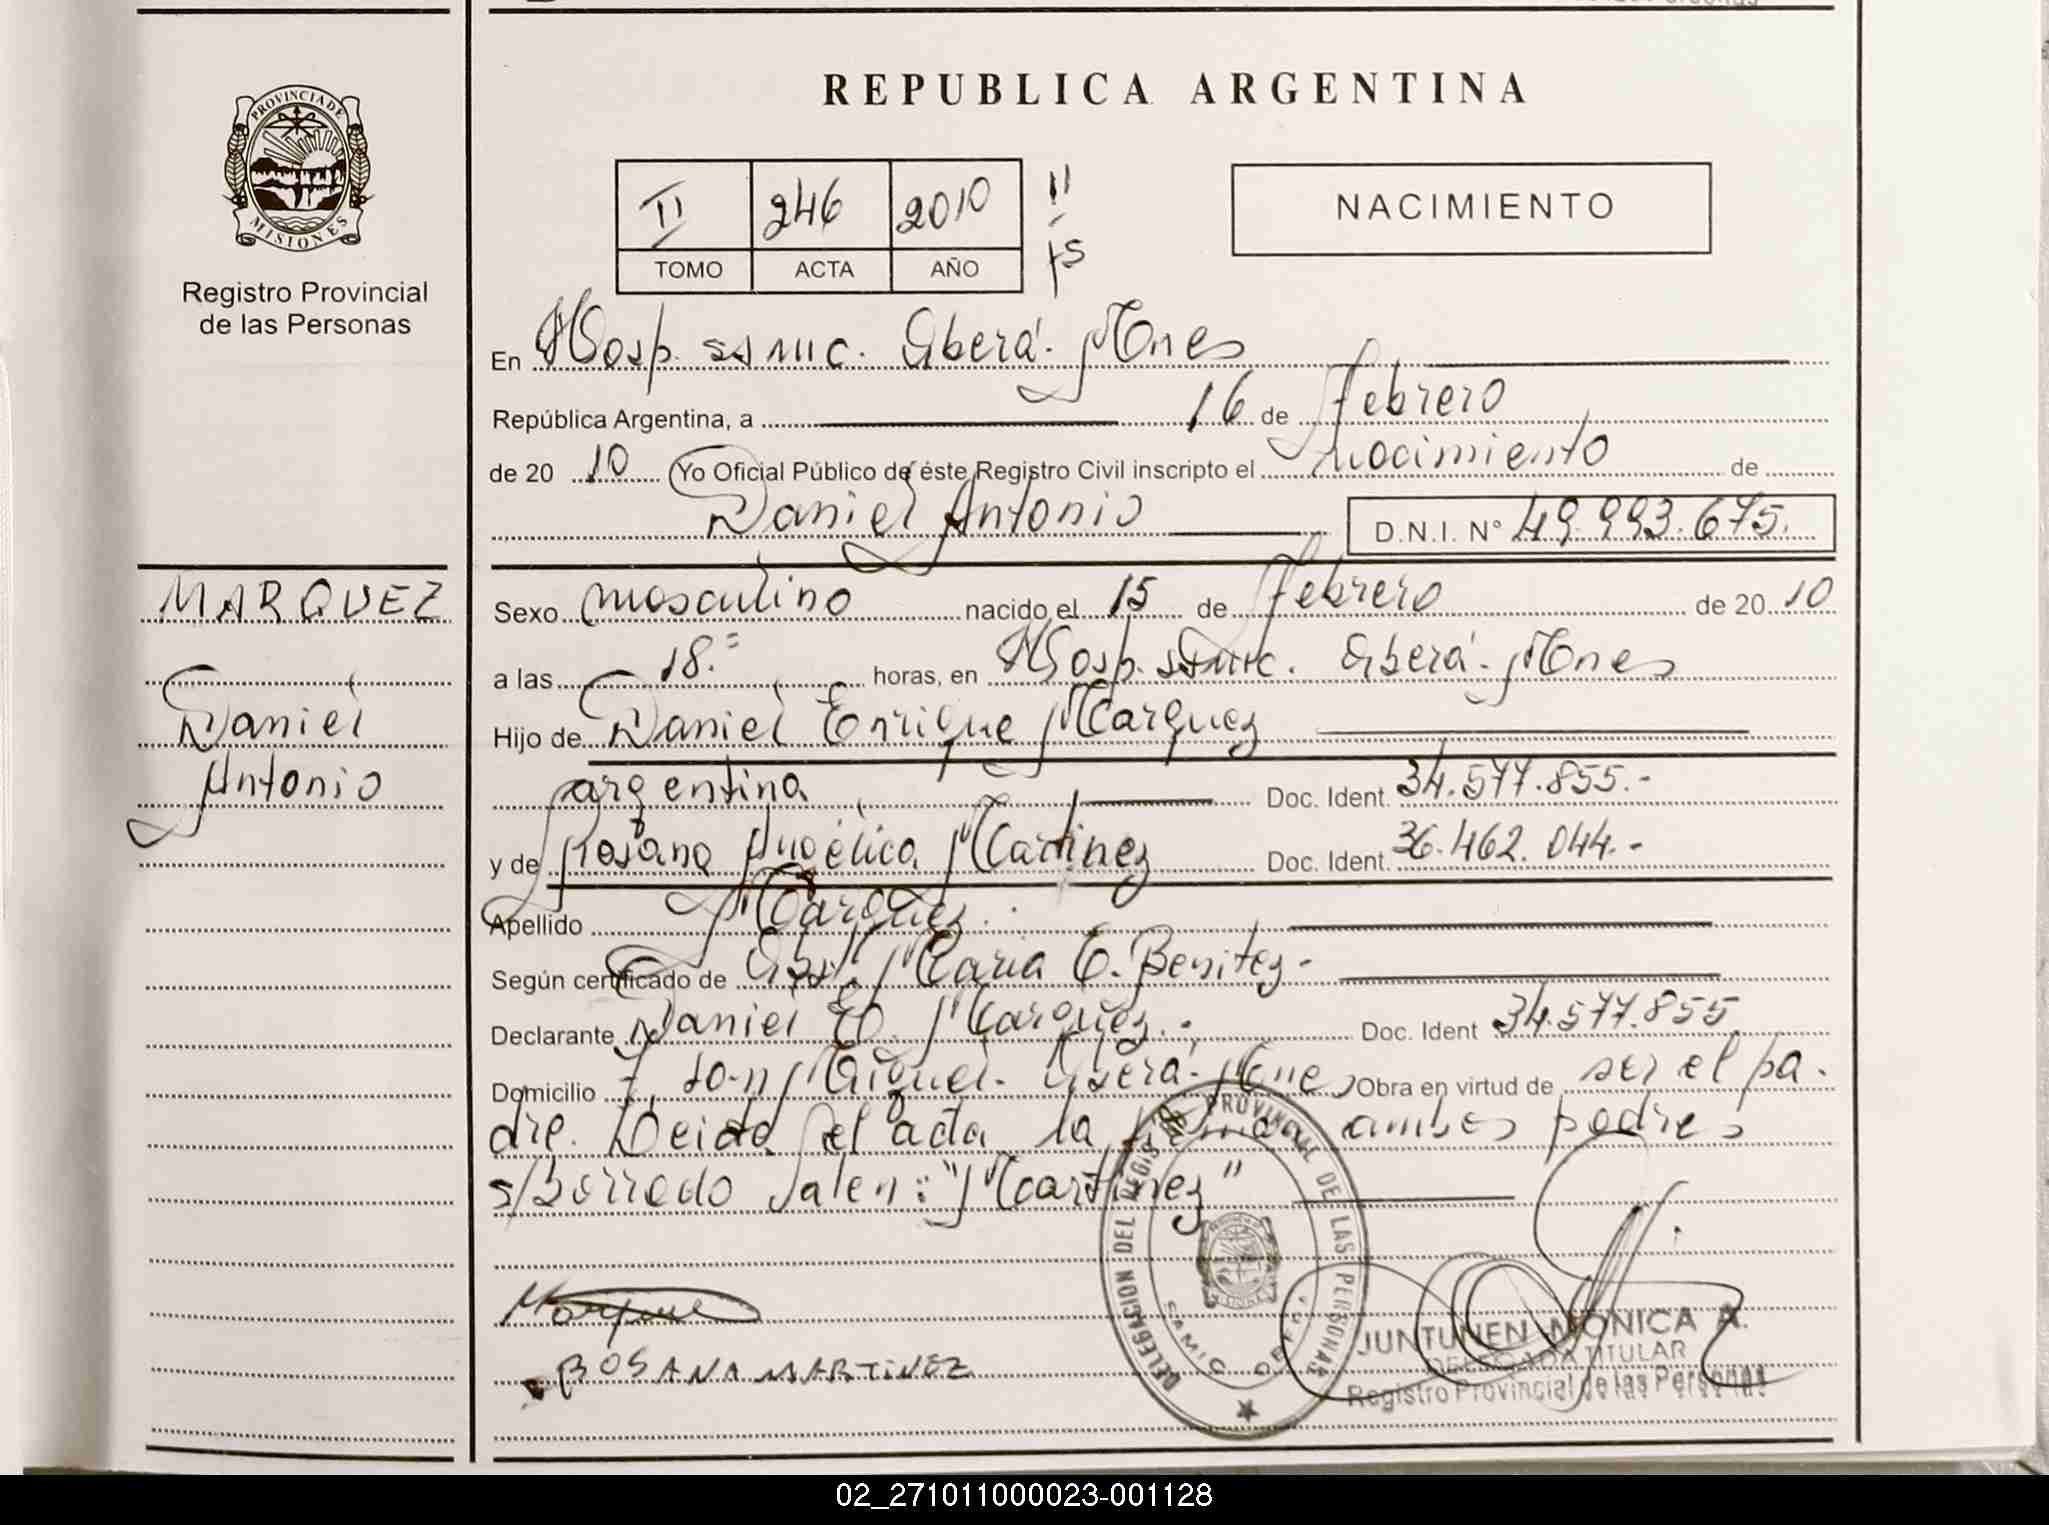 REPUBLICA ARGENTINA
PROVINCIA DE
MISIONES
Registro Provincial
de las Personas
II 246 2010
TOMO ACTA AÑO
NACIMIENTO
En Hosp. ssmc. Oberá. Mnes
República Argentina, a 16 de febrero
de 20 10 Yo Oficial Público de éste Registro Civil inscripto el nacimiento de
Daniel Antonio D.N.I. N° 49.993.675.
MARQUEZ
Daniel
Antonio
Sexo masculino nacido el 15 de febrero de 20 10
a las 18.= horas, en Hosp. ssmc. Oberá. Mnes
Hijo de Daniel Enrique Marquez
argentina Doc. Ident. 34.577.855.-
y de Rosana Angélica Martinez Doc. Ident. 36.462.044.-
Apellido Marquez.
Según certificado de Obst. Maria E. Benitez-
Declarante Daniel E. Marquez.- Doc. Ident 34.577.855
Domicilio San Miguel. Oberá. Mnes Obra en virtud de ser el pa.
dre. Leida el acta la firman ambos padres
s/Borrado Valen: "Martinez"
Marquez
ROSANA MARTiNEZ
DELEGACION DEL REGISTRO PROVINCIAL DE LAS PERSONAS
JUNTUNEN MONICA A.
DELEGADA TITULAR
Registro Provincial de las Personas
02_271011000023-001128